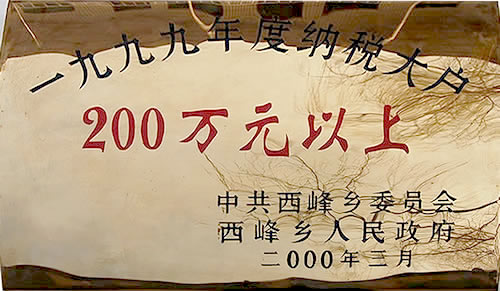 一九九九年度纳税大户
200万元以上
中共西峰乡委员会
西峰乡人民政府
二000年三月